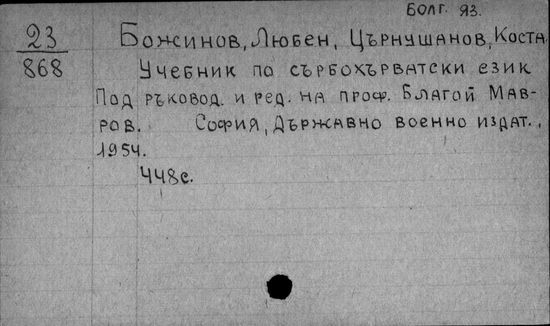 Болг. яз.
23
868
Божинов, Любен, Църнушанов, Коста
Учебник по сърбохърватски език
Под ръковод. и ред. на проф. Благой Мав-
ров. София, Държавно военно издат.,
1954.
448с.